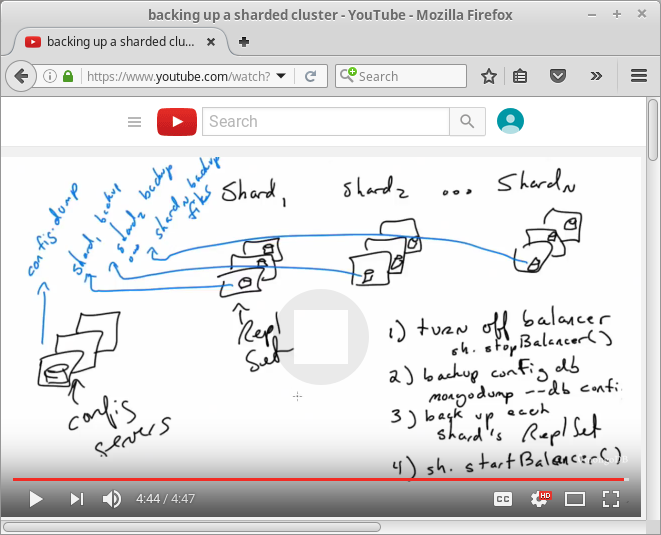 backing up a sharded cluster - YouTube - Mozilla Firefox
backing up a sharded clu...
https://www.youtube.com/watch?
Search
Search
config.dump
shard1 backup
shard2 backup
shardN backup
files
Shard1
Shard2
...
ShardN
Repl
Set
config
servers
1) turn off balancer
sh.stopBalancer()
2) backup config db
mongodump --db config
3) back up each
shard's Repl Set
4) sh.startBalancer()
4:44 / 4:47
CC
HD